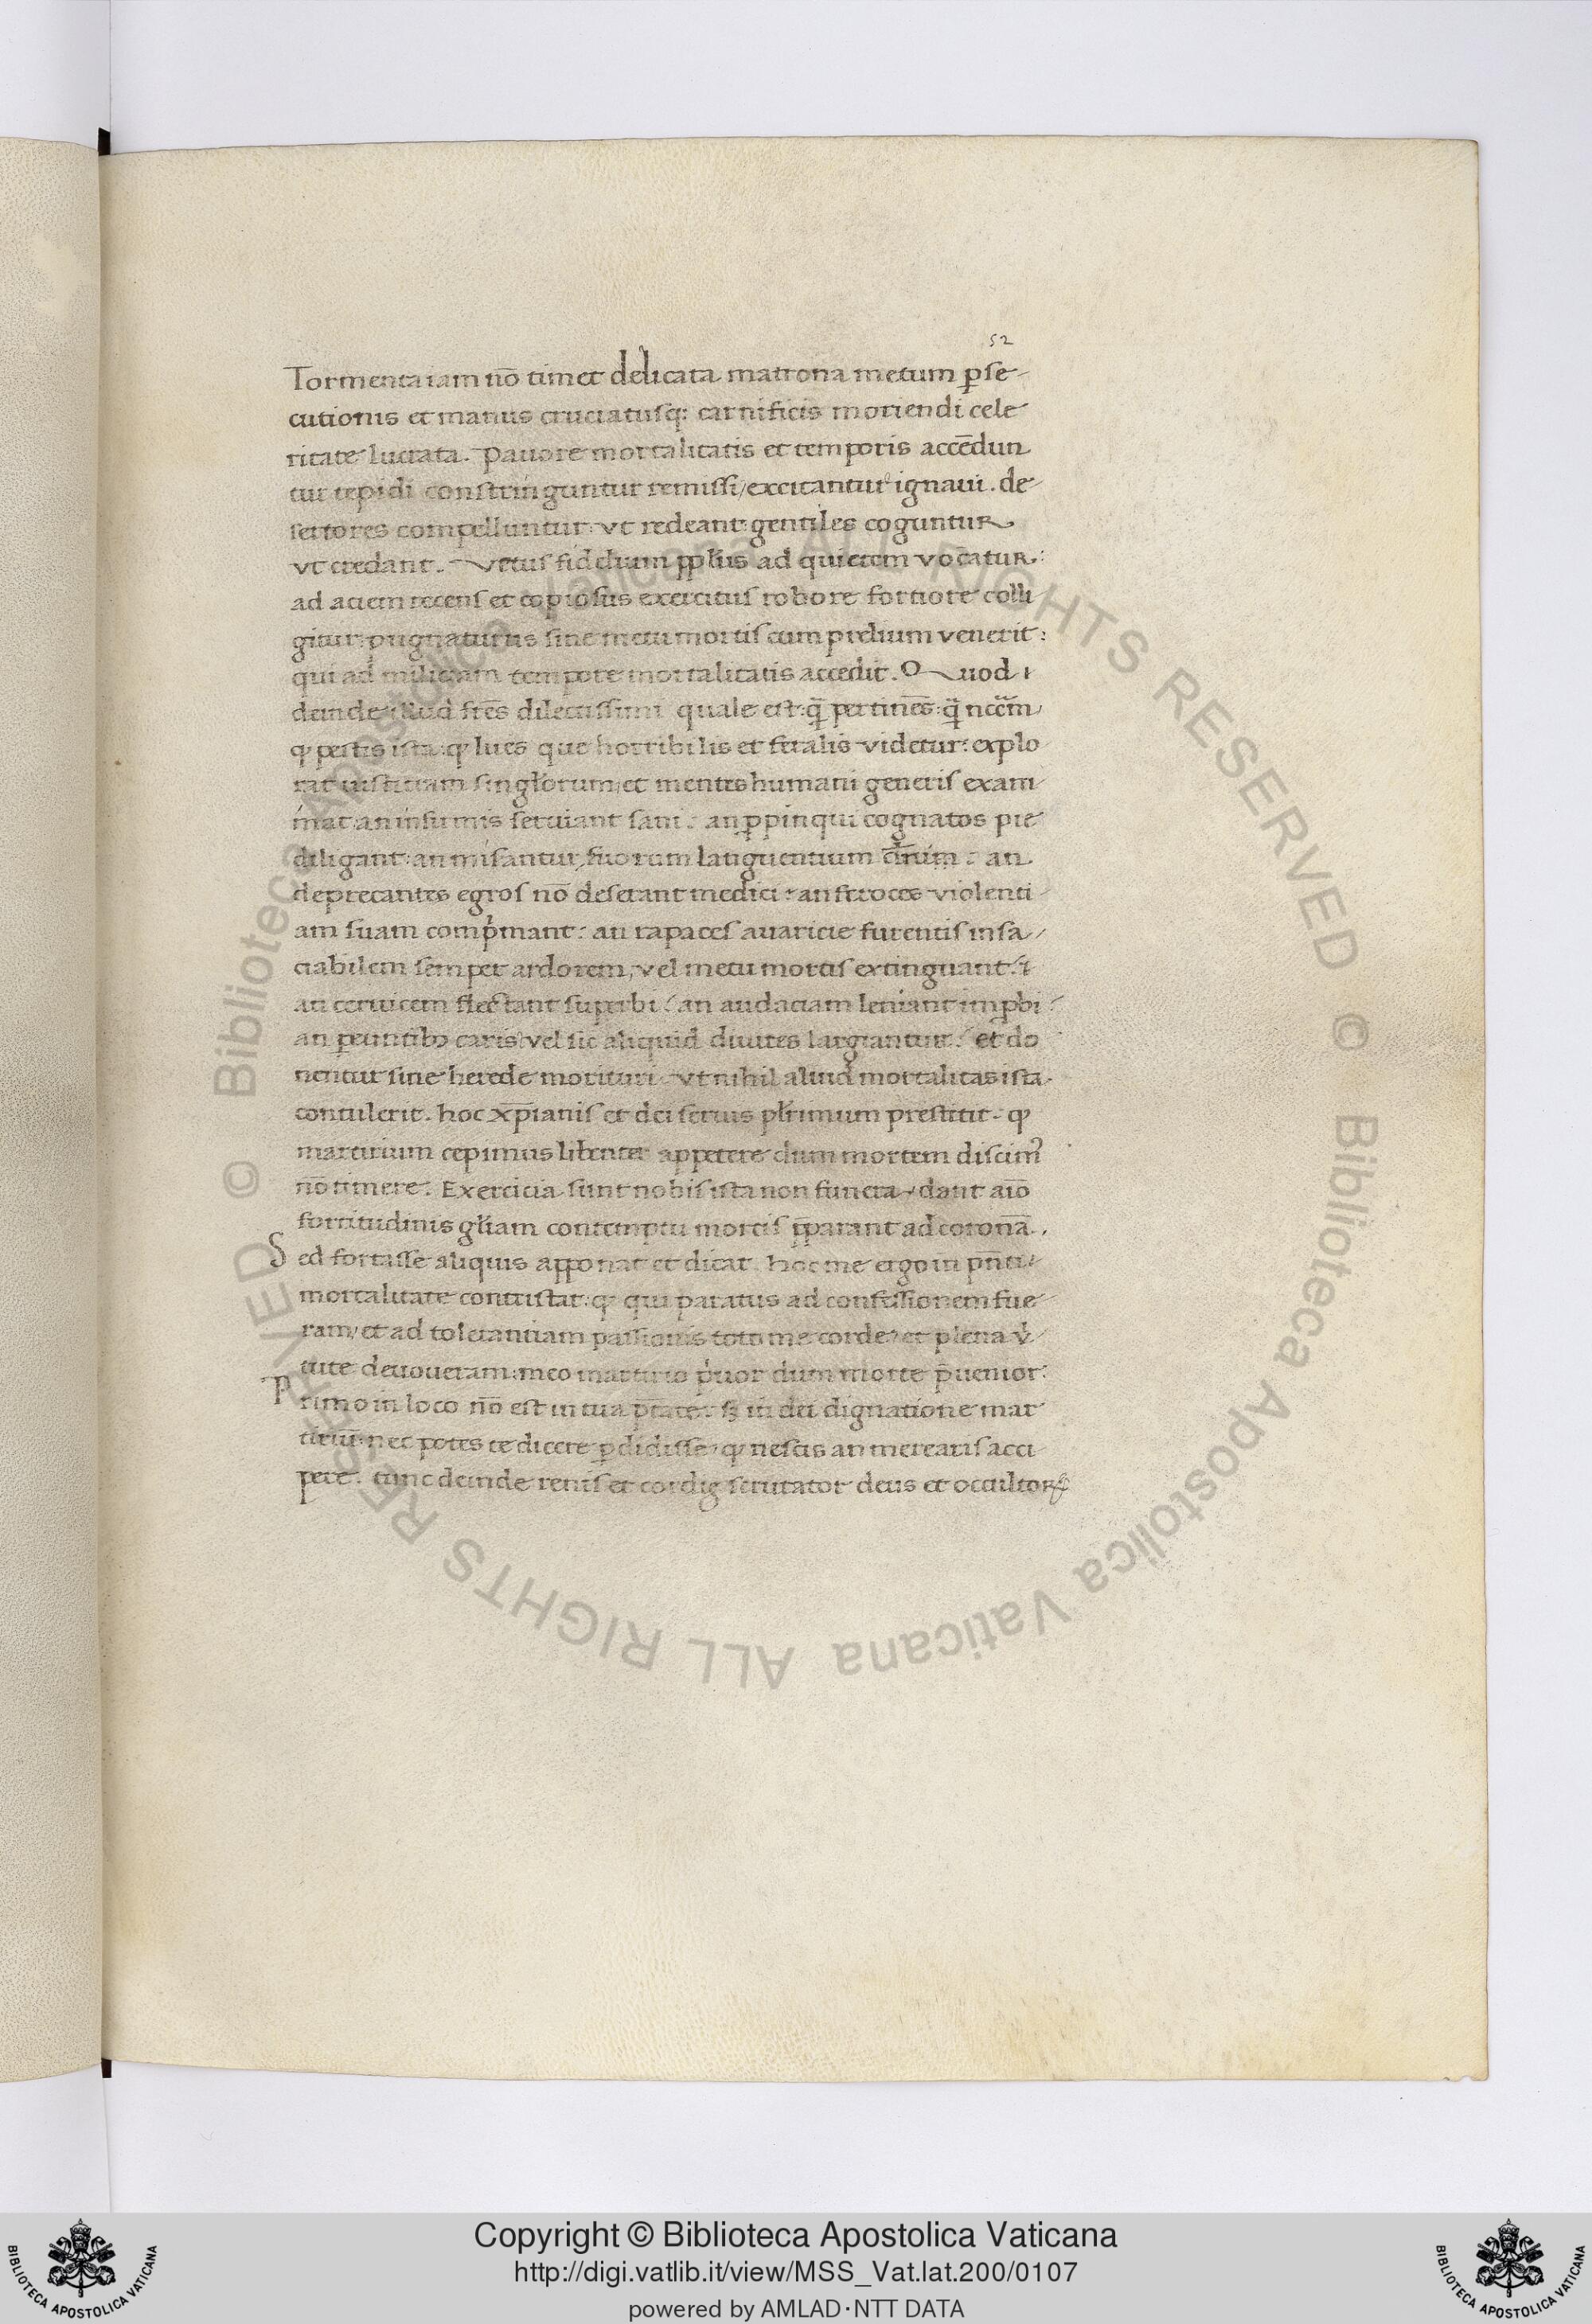 52
Tormenta iam nō timet delicata matrona metum ꝑse
cutionis et manus cruciatusq; carnificis moriendi cele
ritate lucrata. Pauore mortalitatis et temporis accēdun
tur tepidi constringuntur remissi/ excitantur ignaui. de
sertores compelluntur: vt redeant: gentiles coguntur
vt credant. Vetus fidelium pplus ad quietem vocatur:
ad aciem recens et copiosus exercitus robore fortiore colli
gitur: pugnaturus sine metu mortis cum prelium venerit:
qui ad miliciam tempore mortalitatis accedit. Quod
deinde illud frēs dilectissimi quale est: q̄ pertinēs: q̄ nccm̄
ꝙ pestis ista: ꝙ lues que horribilis et feralis videtur: explo
rat iustitiam singlorum/ et mentes humani generis exami
nat: an infirmis seruiant sani: an ꝓpinqui cognatos pie
diligant: an misantur suorum languentium dn̄i: an
deprecantes egros nō deserant medici: an feroces violenti
am suam compⁱmant: an rapaces auaricie furentis insa
ciabilem semper ardorem, vel metu mortis extinguant:
an ceruicem flectant superbi: an audaciam leniant imꝓbi
an ꝑeuntibꝰ caris: vel sic aliquid diuites largiantur: et do
nentur sine herede morituri. vt nihil aliud mortalitas ista
contulerit. hoc xp̄ianis et dei seruis plrimum prestitit. ꝙ
martirium cepimus libenter appetere dum mortem discimꝰ
nō timere. Exercicia sunt nobis ista non funera, dant aīo
fortitudinis gliam contemptu mortis p̄parant ad coronā.
Sed fortasse aliquis apponat et dicat. hoc me ergo in pn̄ti
mortalitate contristat: ꝙ qui paratus ad confessionem fue
ram/ et ad tolerantiam passionis toto me corde et plena vⁱ
tute deuoueram: meo martirio pⁱuor dum morte p̄uenior:
Primo in loco nō est in tua ptāte: sꝫ in dei dignatione mar
tiriū: nec potes te dicere ꝑdidisse: ꝙ nescis an merearis acci
pere. tunc deinde renis et cordis scrutator deus et occultoꝝ
Copyright © Biblioteca Apostolica Vaticana
http://digi.vatlib.it/view/MSS_Vat.lat.200/0107
powered by AMLAD·NTT DATA
BIBLIOTECA APOSTOLICA VATICANA
BIBLIOTECA APOSTOLICA VATICANA
© Biblioteca Apostolica Vaticana ALL RIGHTS RESERVED
© Biblioteca Apostolica Vaticana ALL RIGHTS RESERVED